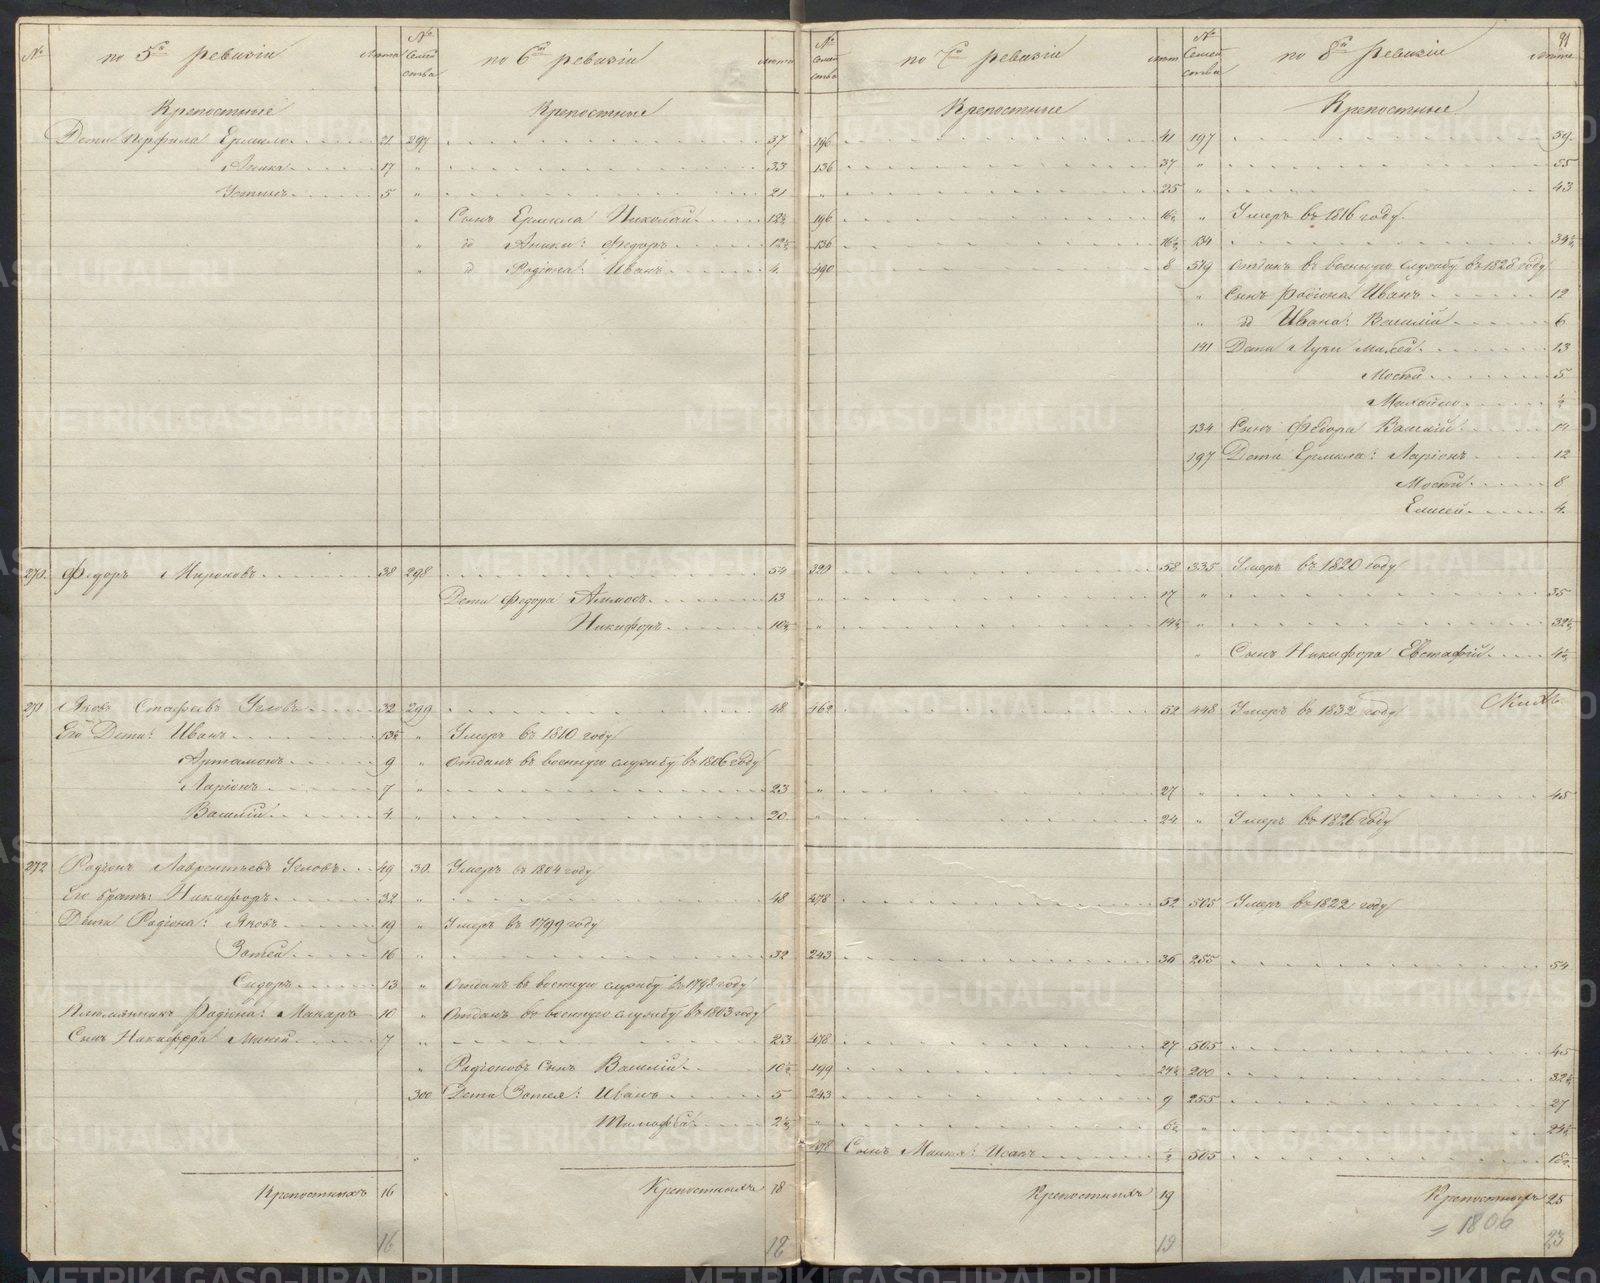 91
№ по 5й ревизіи Лѣта № Семейства по 6й ревизіи лѣта № Семейства по 7й ревизіи лѣт № Семейства по 8й ревизіи Лѣта
Крепостные Крепостные Крепостные Крепостные
Дети Перфила Ермило 21 297 37 196 41 197 59
Аника 17 " 33 136 37 " 55
Устинъ 5 " 21 " 25 " 43
" Сынъ Ермила Николай 12½ 196 16½ " Умеръ въ 1816 году.
" д Аники: Федоръ 12½ 136 16½ 134 34½
" д Радіона: Иванъ 4 490 8 519 Отданъ въ военную службу въ 1828 году
" Сынъ Радіона Иванъ 12
" д Ивана: Василій 6
141 Дети Луки 13
5
Михайло ½
134 Сынъ Федора Василій 11
197 Дети Ермила: Ларіонъ 12
8
Елисей 4
270 Федоръ Мироновъ 38 298 54 320 58 335 Умеръ въ 1820 году
Дети Федора 13 " 17 " 35
Никифоръ 10½ " 14½ " 32½
" Сынъ Никифора Евстафій 4½
271 Яковъ Угловъ 32 299 48 462 52 448 Умеръ въ 1832 году
Его Дети: Иванъ 13½ " Умеръ въ 1810 году
Артамонъ 9 " Отданъ въ военную службу въ 1806 году
Ларіонъ 7 " 23 " 27 " 45
Василій 4 " 20 " 24 " Умеръ въ 1826 году
272 Радіонъ Лаврентьевъ Угловъ 49 30 Умеръ въ 1804 году
Его братъ: Никифоръ 32 " 48 478 52 505 Умеръ въ 1822 году
Дети Радіона: Яковъ 19 " Умеръ въ 1799 году
Зотей 16 " 32 243 36 255 54
Сидоръ 13 " Отданъ въ военную службу въ 1798 году
Племянникъ Радіона: Макаръ 10 " Отданъ въ военную службу въ 1803 году
Сынъ Никифора Миней 7 " 23 478 27 505 45
" Радіоновъ Сынъ Василій 10½ 199 24½ 200 32½
300 Дети Зотея: Иванъ 5 243 9 255 27
Тимофѣй 2½ " 6½ " 24½
" 478 Сынъ Минея: Исакъ ½ 505 18½
Крепостныхъ 16 Крепостныхъ 18 Крепостныхъ 19 Крепостныхъ 25
= 1806
16 18 19 23
METRIKI.GASO-URAL.RU